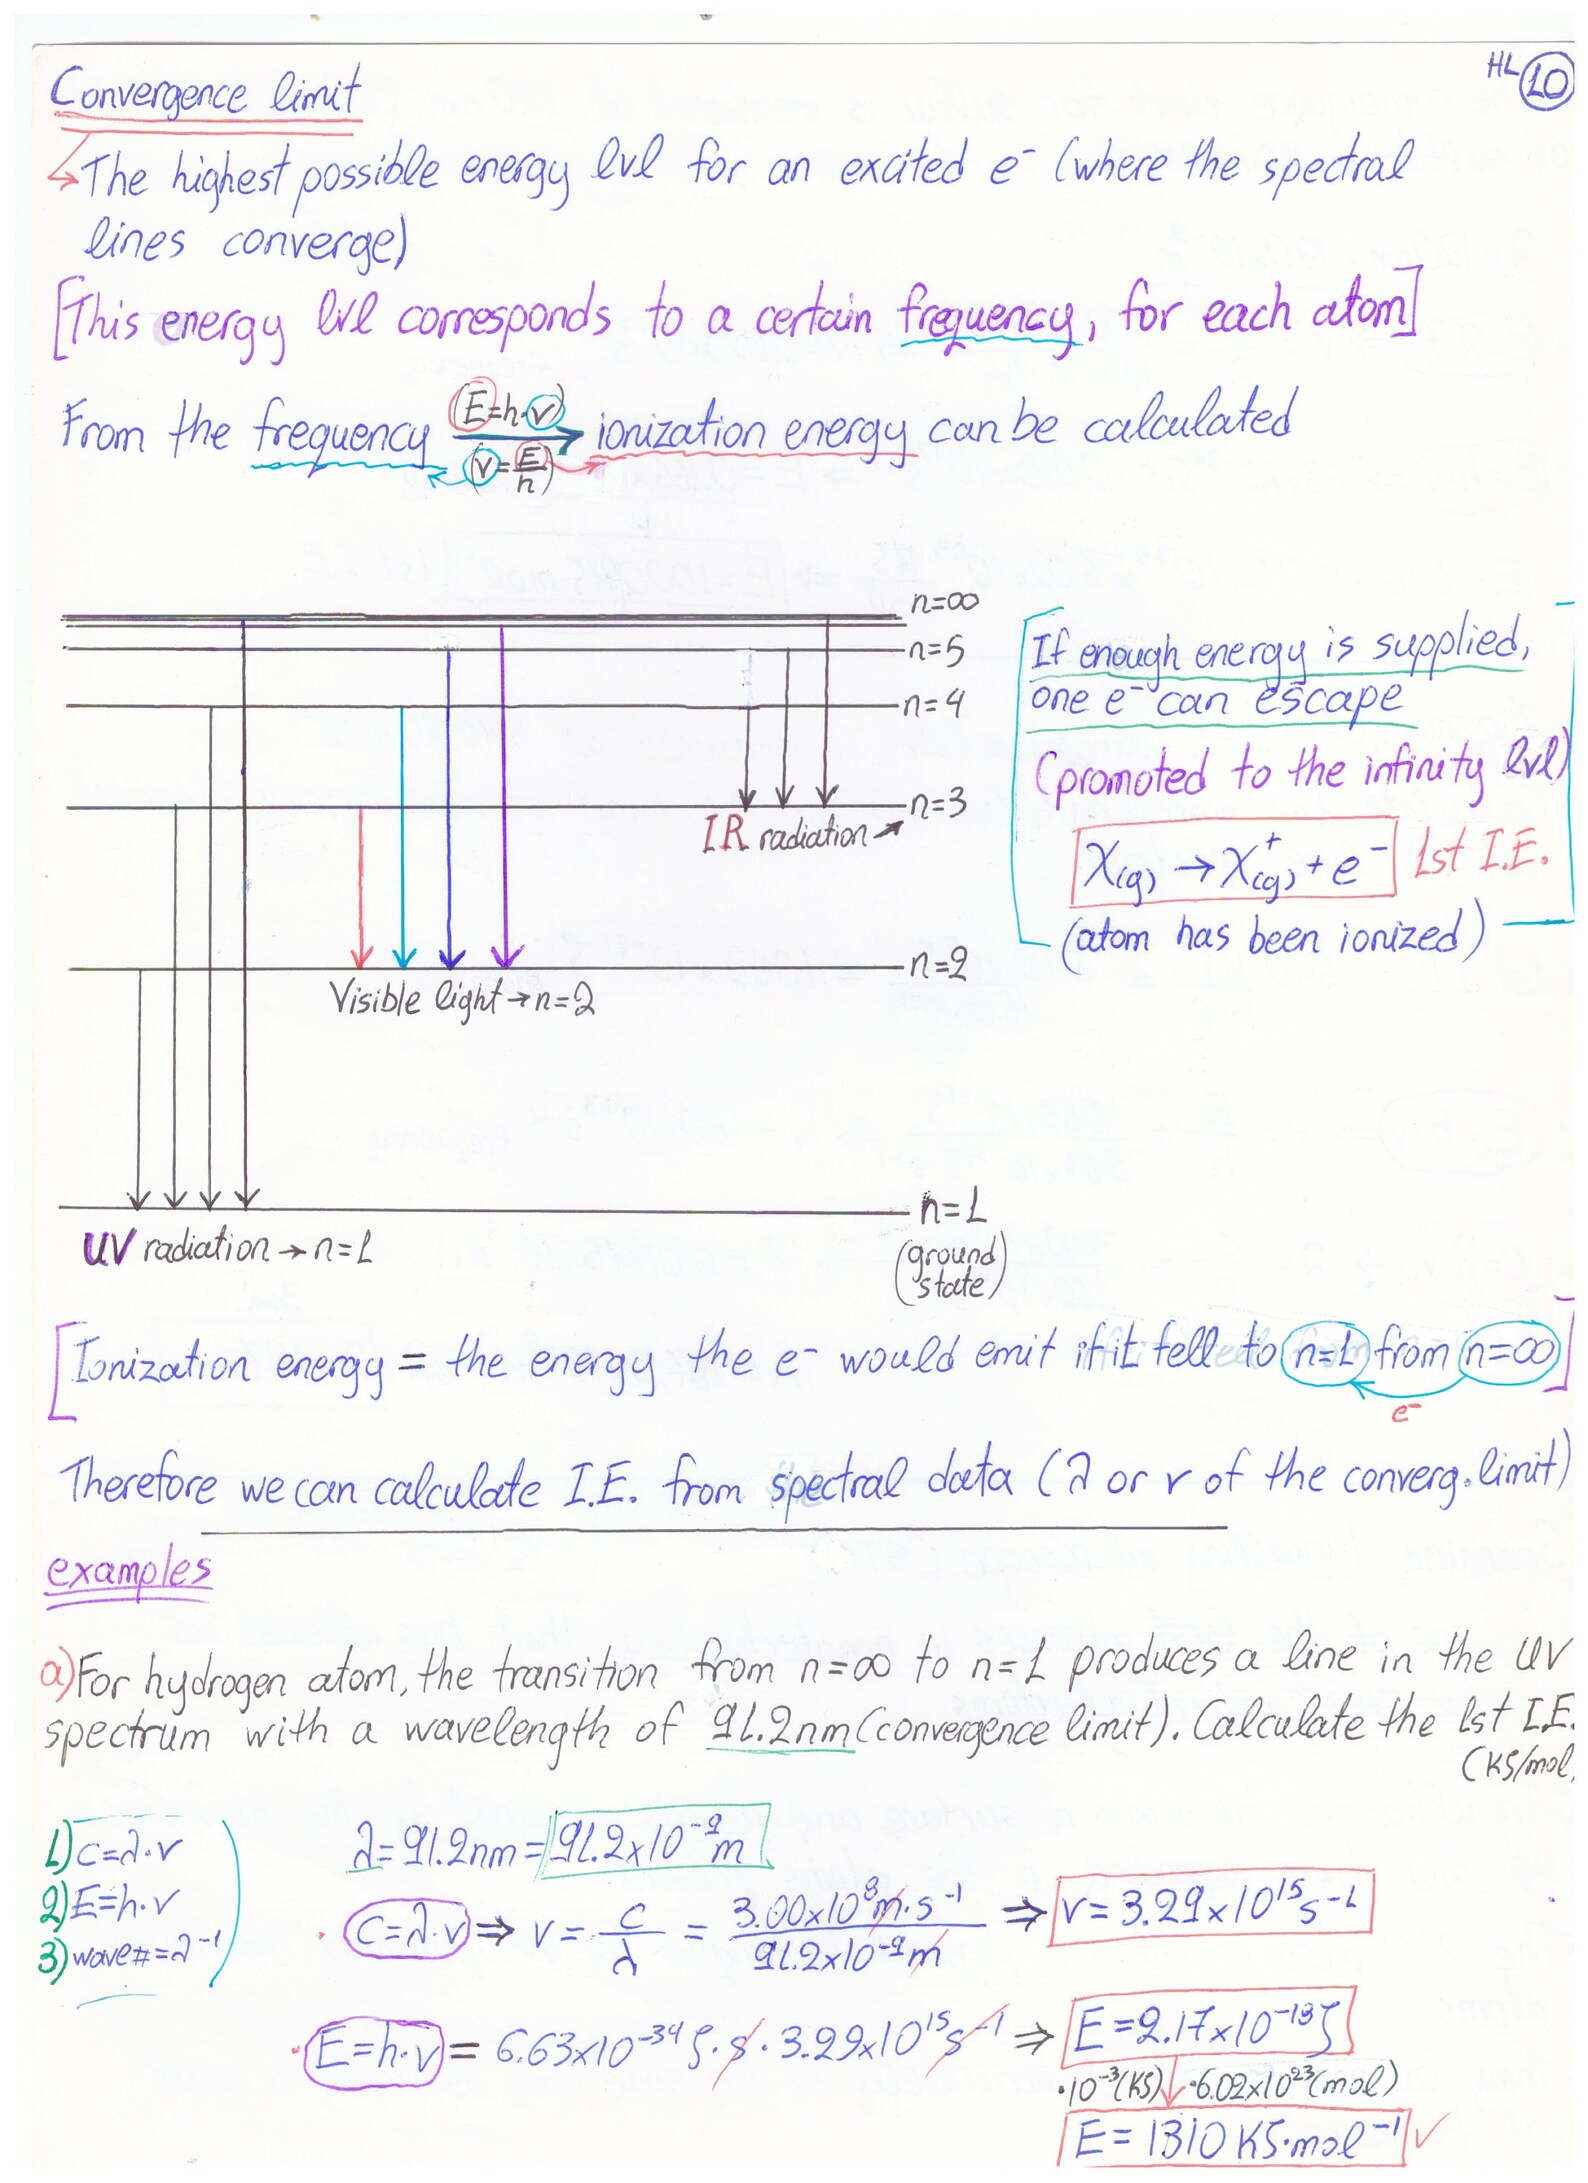 HL 10
Convergence limit
↳The highest possible energy lvl for an excited e⁻ (where the spectral
lines converge)
[This energy lvl corresponds to a certain frequency, for each atom]
(E=h·ν)
From the frequency → ionization energy can be calculated
(ν=E/h)
n=∞
n=5
n=4
n=3
IR radiation ↗
n=2
Visible light→n=2
n=1
(ground state)
UV radiation → n=1
[If enough energy is supplied,
one e⁻ can escape
(promoted to the infinity lvl)
X(g) → X⁺(g) + e⁻ 1st I.E.
(atom has been ionized)]
[Ionization energy = the energy the e⁻ would emit if it fell to n=1 from n=∞]
e⁻
Therefore we can calculate I.E. from spectral data (λ or ν of the converg. limit)
examples
a) For hydrogen atom, the transition from n=∞ to n=1 produces a line in the UV
spectrum with a wavelength of 91.2nm (convergence limit). Calculate the 1st I.E.
(KJ/mol)
1) C=λ·ν
2) E=h·ν
3) wave#=λ⁻¹
λ=91.2nm=91.2x10⁻⁹m
C=λ·ν ⇒ ν = C/λ = 3.00x10⁸m·s⁻¹/91.2x10⁻⁹m ⇒ ν=3.29x10¹⁵s⁻¹
E=h·ν = 6.63x10⁻³⁴J·s · 3.29x10¹⁵s⁻¹ ⇒ E=2.17x10⁻¹⁸J
·10⁻³(KJ) ↓ ·6.02x10²³(mol)
E= 1310 KJ·mol⁻¹ ✓